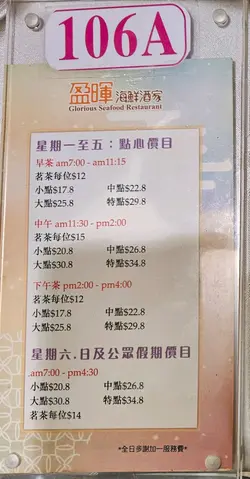 106A
盈暉海鮮酒家
Glorious Seafood Restaurant
星期一至五：點心價目
早茶 am7:00 - am11:15
茗茶每位$12
小點$17.8 中點$22.8
大點$25.8 特點$29.8
中午 am11:30 - pm2:00
茗茶每位$15
小點$20.8 中點$26.8
大點$30.8 特點$34.8
下午茶 pm2:00 - pm4:00
茗茶每位$12
小點$17.8 中點$22.8
大點$25.8 特點$29.8
星期六.日及公眾假期價目
am7:00 - pm4:30
小點$20.8 中點$26.8
大點$30.8 特點$34.8
茗茶每位$14
*全日步謝加一服務費*